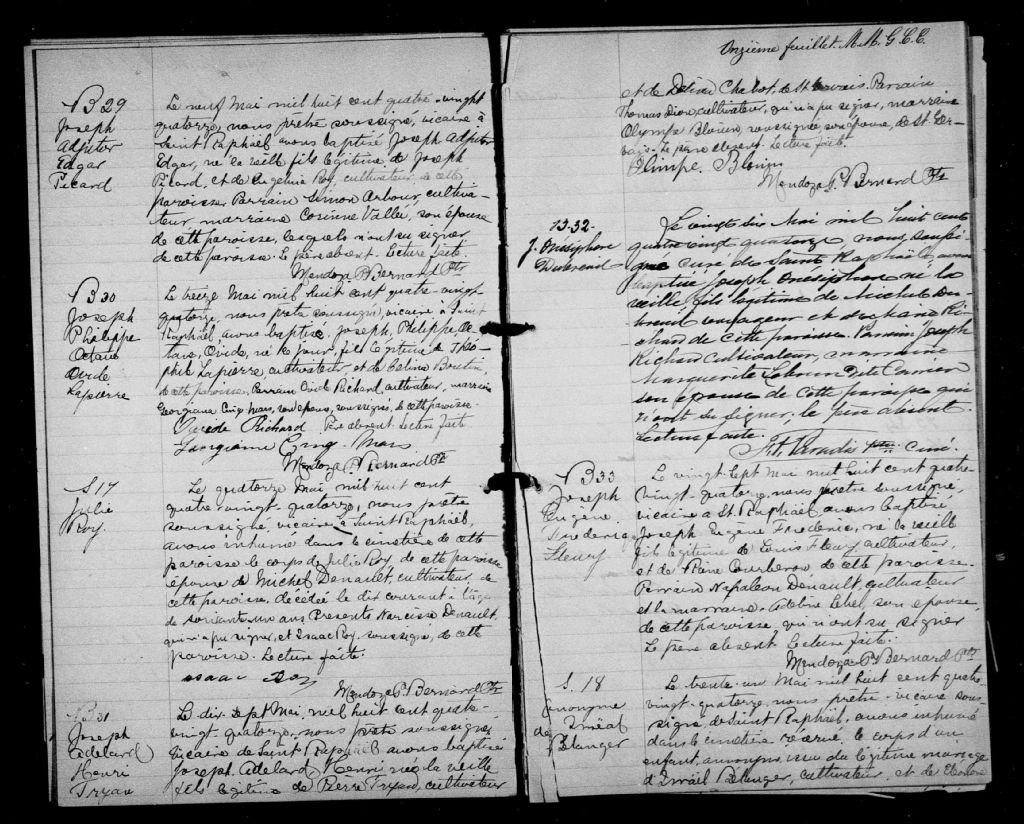 B 29
Joseph
Adjutor
Edgar
Picard
Le neuf Mai mil huit cent quatre-vingt
quatorze, nous prêtre soussigné, vicaire à
Saint Raphaël avons baptisé Joseph Adjutor
Edgar, né la veille fils légitime de Joseph
Picard, et de Eugelina Roy, cultivateur de cette
paroisse. Parrain Simon Arbour, cultiva-
teur marraine Corinne Vallée, son épouse
de cette paroisse, lesquels n'ont su signer
de cette paroisse. Le père absent. Lecture faite.
Mendoza P. Bernard Ptr
B 30
Joseph
Philippe
Octave
Ovide
Lapierre
Le treize Mai mil huit cent quatre-vingt-
quatorze, nous prêtre soussigné, vicaire à Saint
Raphaël, avons baptisé Joseph, Philippe Oc-
tave, Ovide, né ce jour, fils légitime de Théo-
phile Lapierre cultivateur et de Celina Boutin,
de cette paroisse. Parrain Ovide Richard, cultivateur, marraine
Georgianne Cinq-Mars, son épouse, soussignés, de cette paroisse.
Ovide Richard Père absent. Lecture faite
Georgianne Cinq-Mars
Mendoza P. Bernard Ptr
S 17
Julie
Roy
Le quatorze Mai mil huit cent
quatre-vingt-quatorze, nous prêtre
soussigné, vicaire à Saint Raphaël,
avons inhumé dans le cimetière de cette
paroisse le corps de Julie Roy, de cette paroisse
épouse de Michel Denault, cultivateur, de
cette paroisse, décédée le dix courant à l'âge
de soixante-un ans Présents Narcisse Denault,
qui n'a pu signer, et Isaac Roy, soussigné, de cette
paroisse. Lecture faite.
Isaac Roy
Mendoza P. Bernard Ptr
B 31
Joseph
Adelard
Henri
Fryan
Le dix-sept Mai, mil huit cent quatre-
vingt quatorze, nous prêtre soussigné,
vicaire de Saint Raphaël avons baptisé
Joseph Adelard Henri né la veille
fils légitime de Pierre Fryan, cultivateur
Onzième feuillet. M. M. G. C. C.
et de Delina Chabot, de St Gervais. Parrain
Thomas Dion, cultivateur, qui n'a pu signer, marraine
Olympe Blouin, soussignée, son épouse, de St Ger-
vais. Le père absent. Lecture faite.
Olimpe Blouin
Mendoza P. Bernard Ptr
B-32-
J. Onésiphore
Dubreuil
Le vingt six Mai mil huit cent
quatre vingt quatorze nous soussi-
gné curé de Saint Raphaël avons
baptisé Joseph Onésiphore né la
veille fils légitime de Michel Du-
breuil voyageur et de Ri-
chard de cette paroisse. Parrain Joseph
Richard cultivateur, marraine
Marguerite dite
son épouse de cette paroisse qui
n'ont su signer, le père absent.
Lecture faite.
Paradis Ptre Curé.
B 33
Joseph
Eugène
Frederic
Fleury
Le vingt-sept Mai mil huit cent quatre-
vingt-quatorze, nous prêtre soussigné,
vicaire à St. Raphaël avons baptisé
Joseph Eugène Frederic, né la veille
fils légitime de Louis Fleury, cultivateur,
et de de cette paroisse.
Parrain Napoleon Denault, cultivateur
et la marraine Adeline son épouse,
de cette paroisse qui n'ont su signer
Le père absent. Lecture faite.
Mendoza P. Bernard Ptr
S. 18
Anonyme
de Israël
Bélanger
Le trente-un Mai mil huit cent quatre
vingt-quatorze, nous prêtre-vicaire sous-
signé, de Saint Raphaël, avons inhumé
dans le cimetière réservé le corps d'un
enfant, anonyme, issu du légitime mariage
d'Israël Bélanger, cultivateur, et de Eléonore